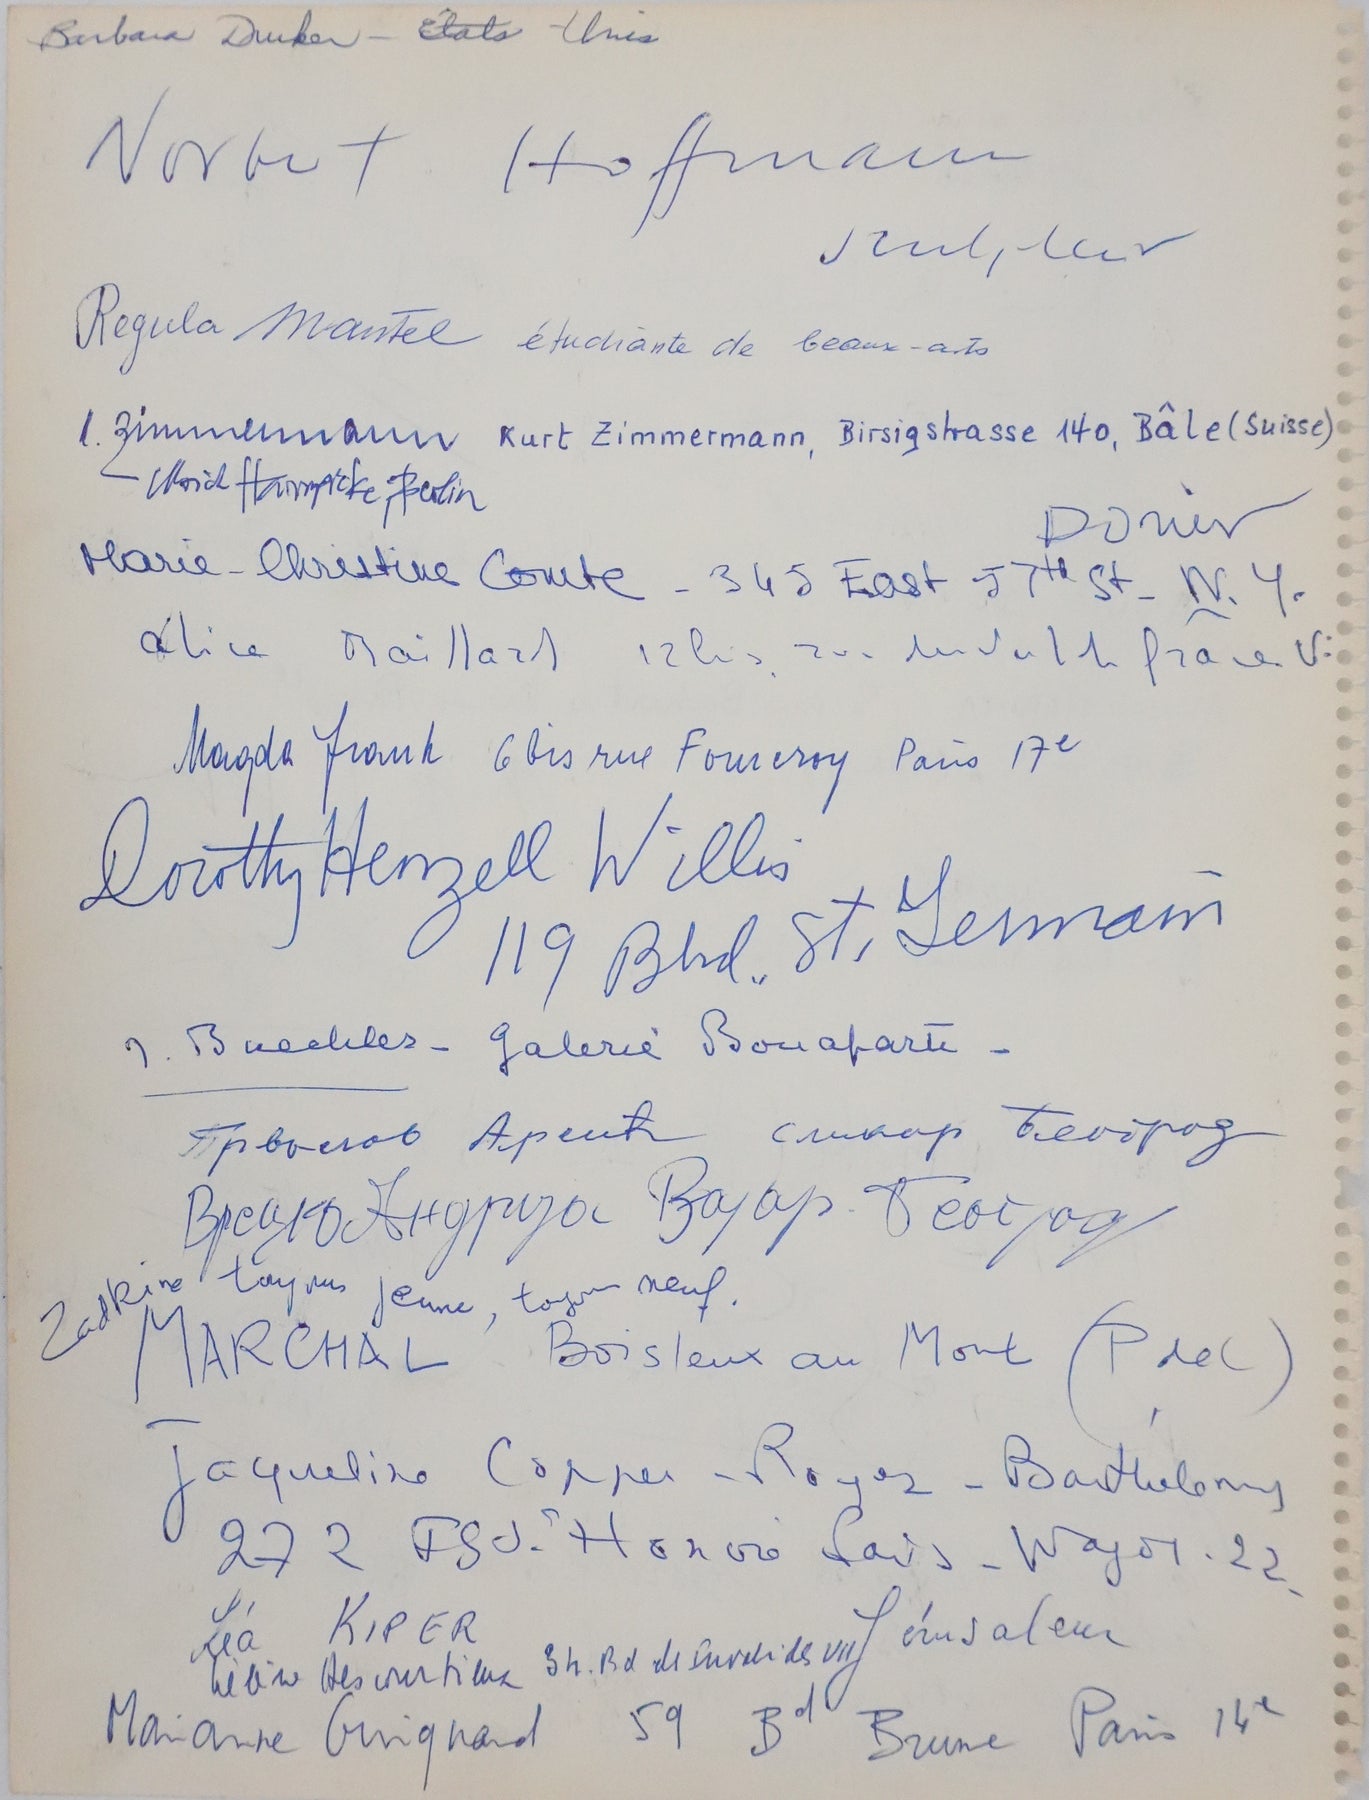 Barbara Drucker - États Unis
Norbert Hoffmann
sculpteur
Regula Mantel étudiante de beaux-arts
Zimmermann Kurt Zimmermann, Birsigstrasse 140, Bâle (Suisse)
Ulrich Hampicke, Berlin
Marie-Christine Comte - 345 East 57th St - N.Y.
Alice Maillard 12 bis, rue du Val de Grâce V
Magda Frank 6 bis rue Fourcroy Paris 17e
Dorothy Henzell Willis
119 Blvd. St. Germain
Buechler - Galerie Bonaparte -
сликар Београд
Андрија Вајар - Београд
Zadkine toujours jeune, toujours neuf.
MARCHAL Boisleux au Mont (P de C)
Jacqueline Copper - Royer - Barthelemy
272 FgSt Honoré Paris - Wagr. 22
Léa KIPER Jérusalem
Hélène Descourtieux Bd des Invalides VII
Marianne Guignard 59 Bd Brune Paris 14e